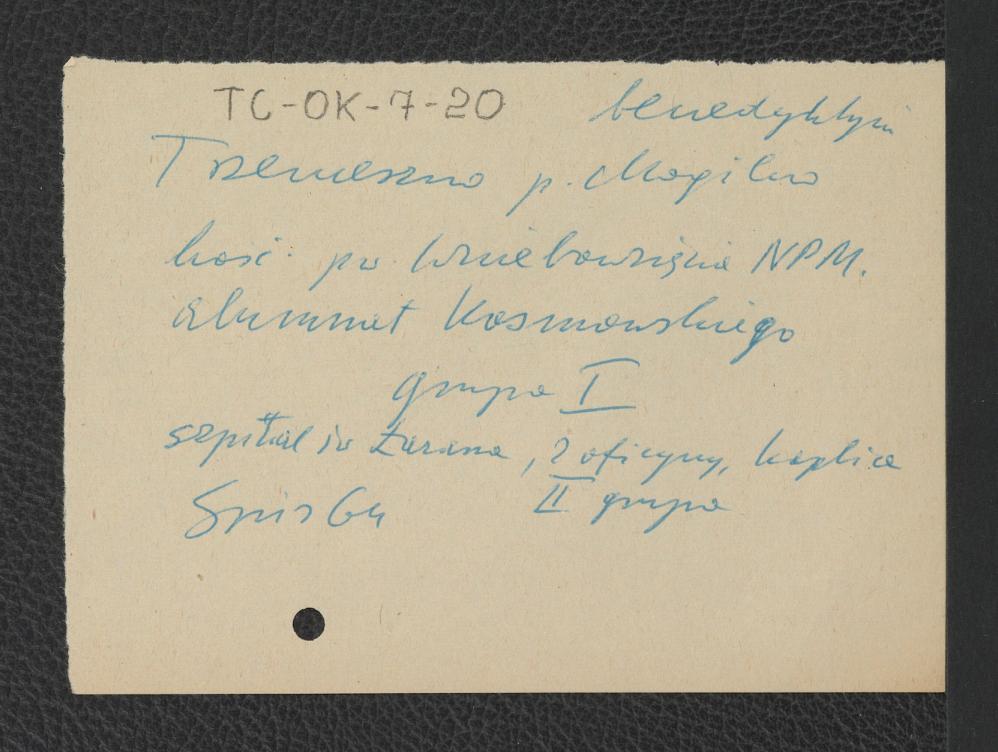 TC-OK-7-20 benedyktyni
Trzemeszno p. Mogilno
kość. pw. Wniebowzięcia NPM.
Alumnat Kosmowskiego
grupa I
szpital św Łazarza, 2 oficyny, kaplica
Spis 64 II grupa